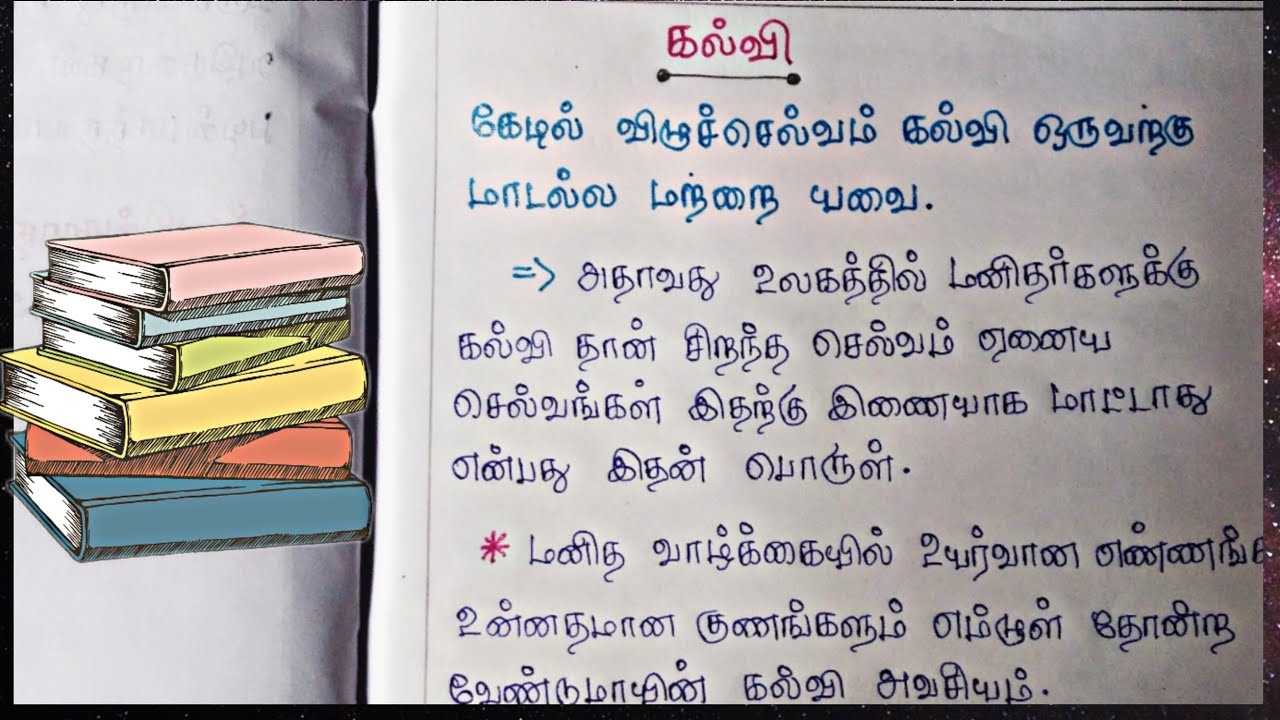 கல்வி
கேடில் விழுச்செல்வம் கல்வி ஒருவற்கு
மாடல்ல மற்றை யவை.
=> அதாவது உலகத்தில் மனிதர்களுக்கு
கல்வி தான் சிறந்த செல்வம் ஏனைய
செல்வங்கள் இதற்கு இணையாக மாட்டாது
என்பது இதன் பொருள்.
* மனித வாழ்க்கையில் உயர்வான
உன்னதமான குணங்களும் எம்முள் தோன்ற
வேண்டுமாயின் கல்வி அவசியம்.